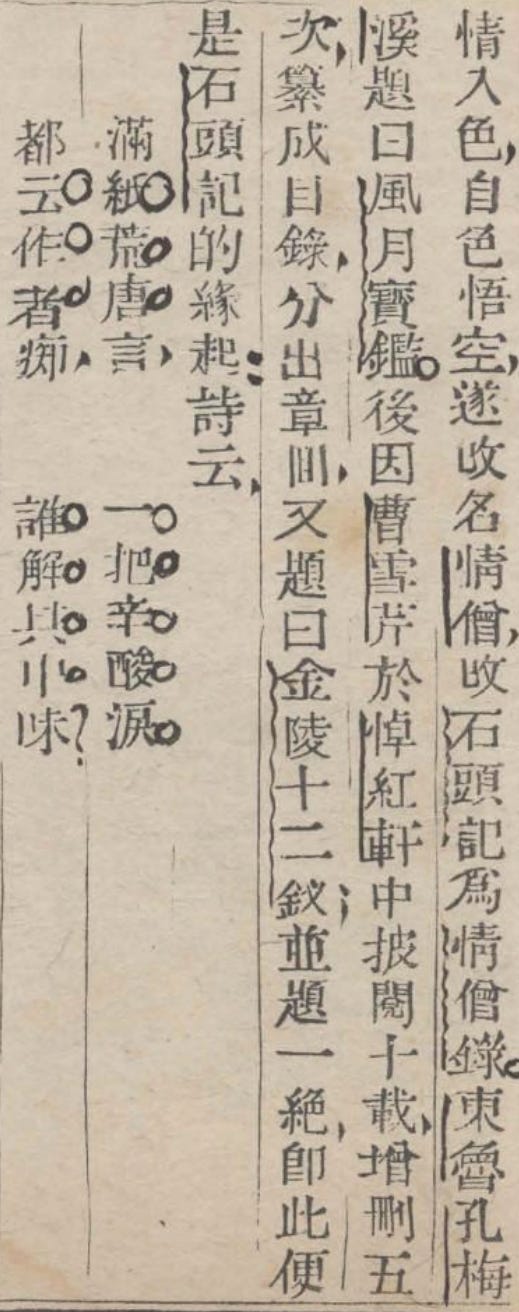 情入色,自色悟空,遂改名情僧,改石頭記爲情僧錄。東魯孔梅
溪題曰風月寶鑑。後因曹雪芹於悼紅軒中披閱十載,增刪五
次,纂成目錄,分出章回,又題曰金陵十二釵;並題一絕,卽此便
是石頭記的緣起:詩云,
滿紙荒唐言,一把辛酸淚。
都云作者痴,誰解其中味?